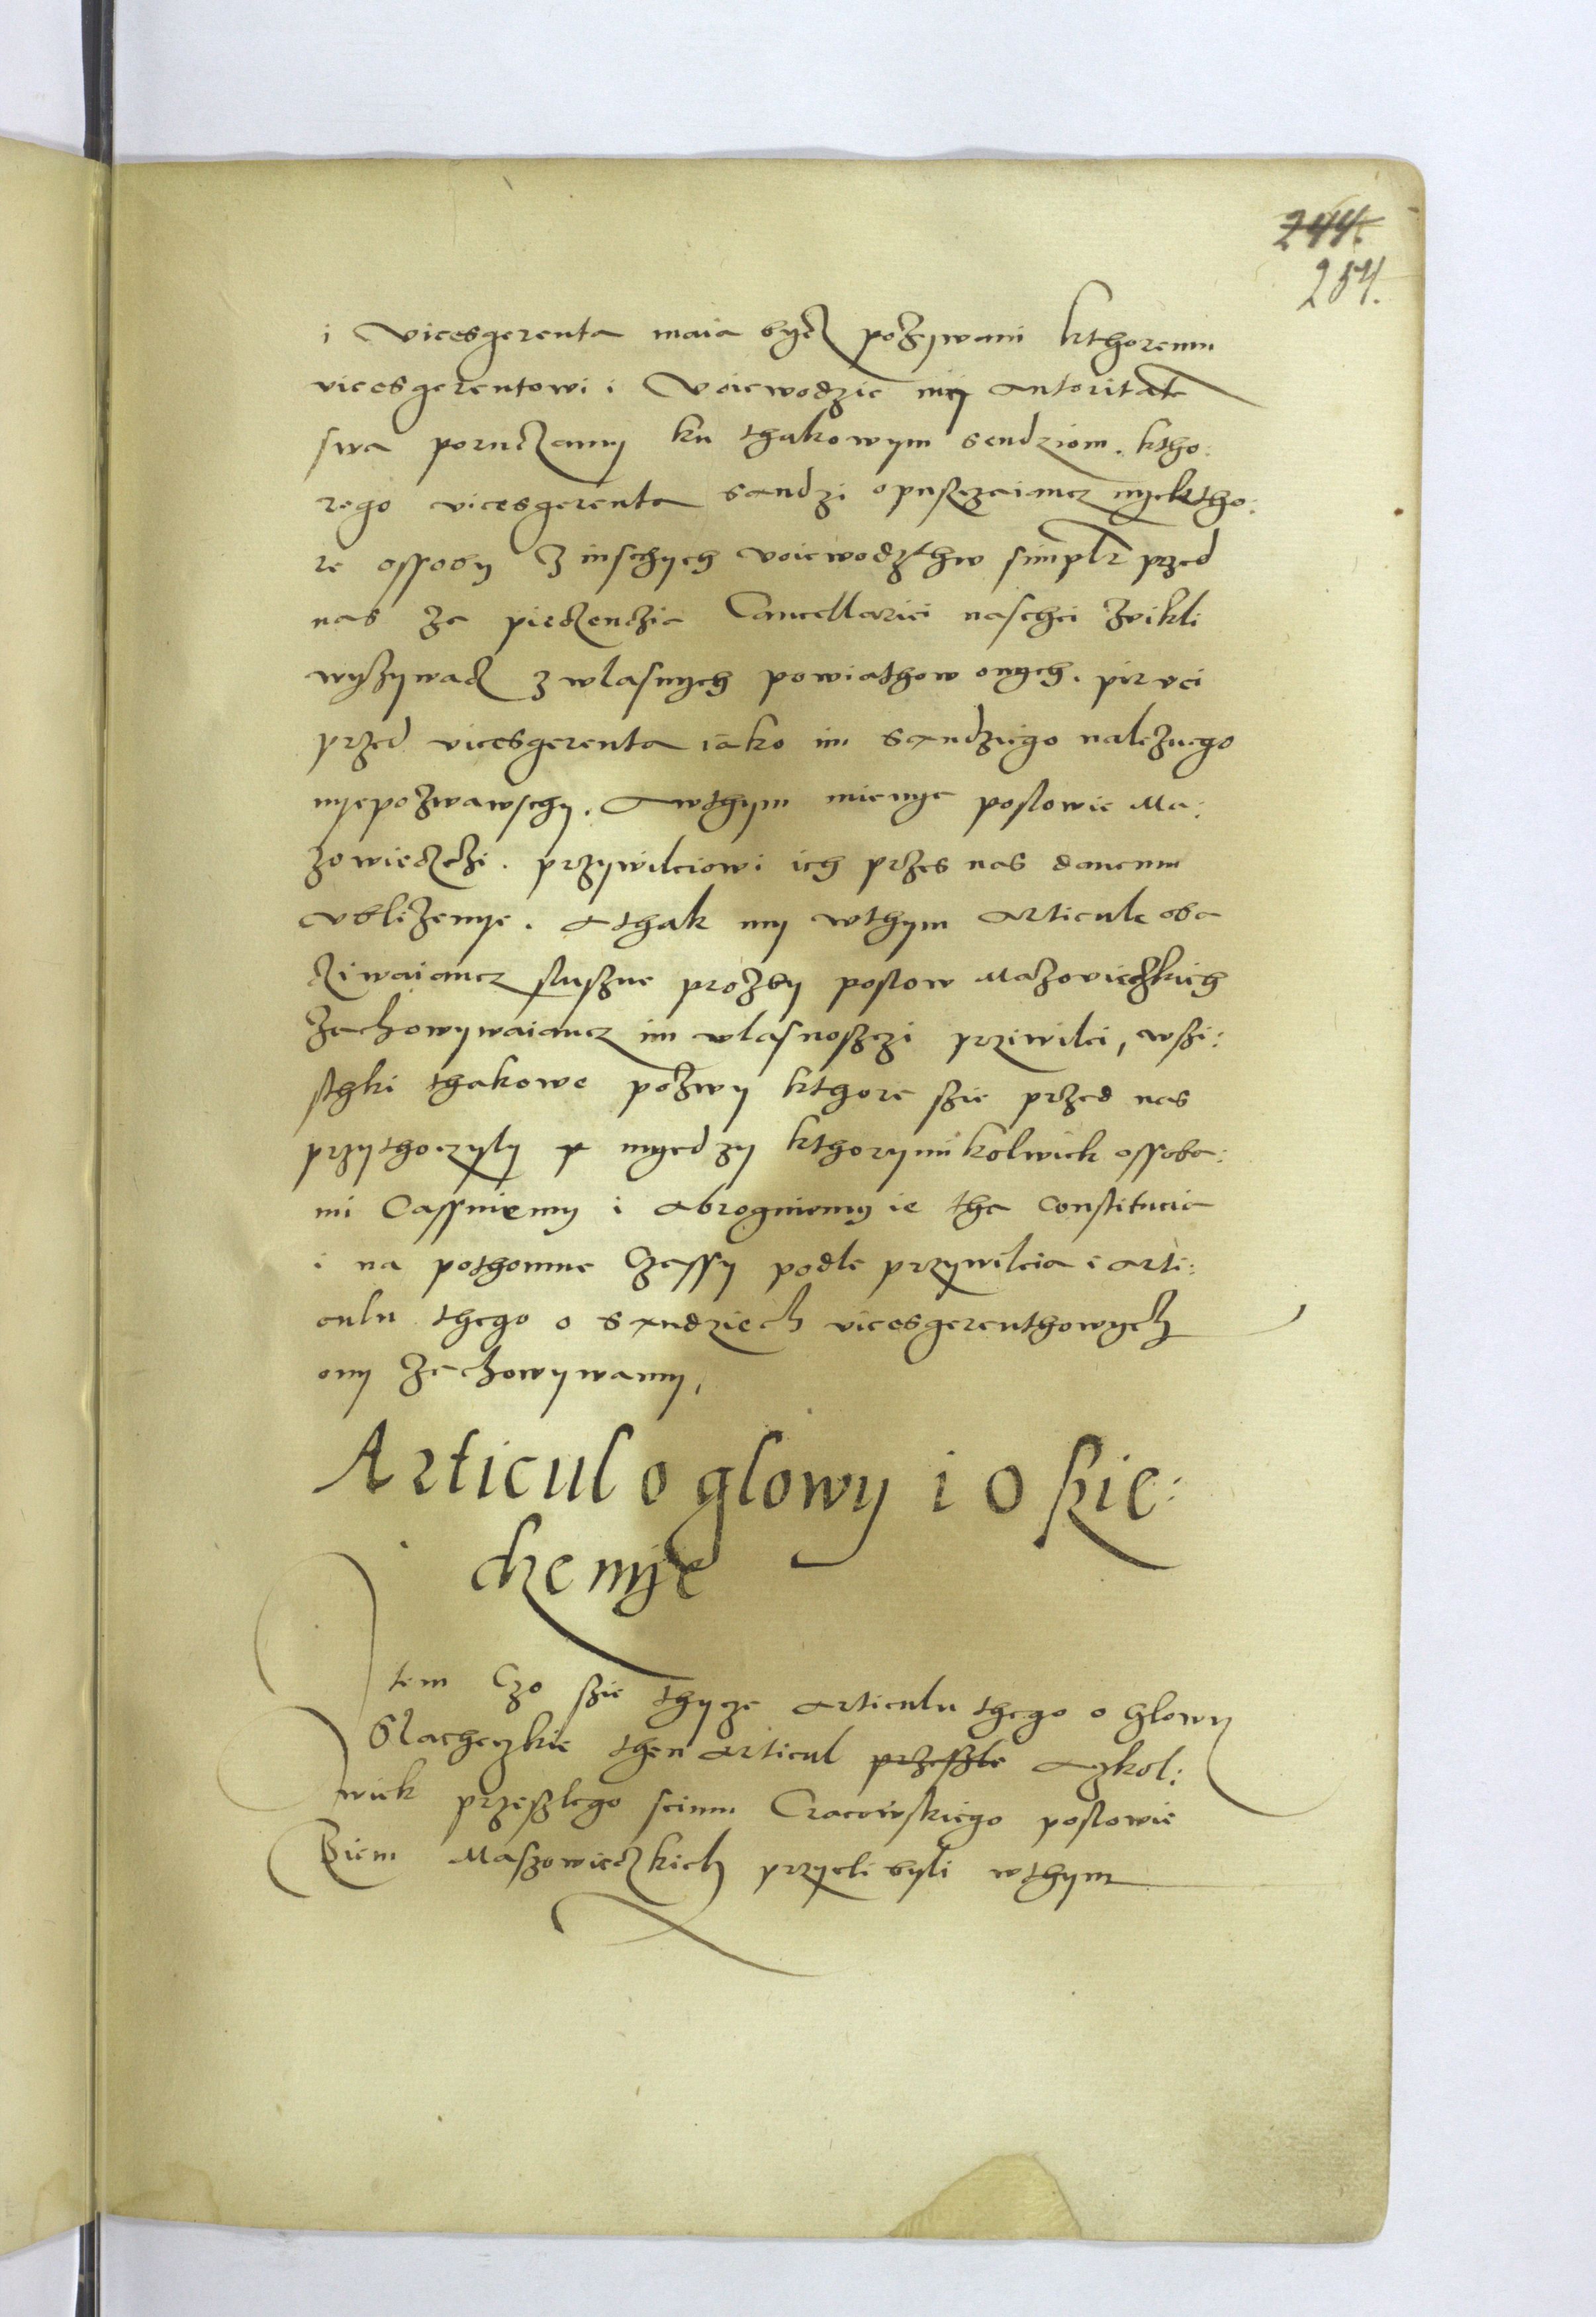 244.
254.
i vicesgerenta maia bycz pozywani kthoremu
vicesgerentowi i Voiewodzie my autoritate
swa poruczamy ku thakowym sendziom. ktho:
rego vicesgerenta sandzi opusczaiancz nyektho:
re ossoby z inschych voiewodzthw simplr przed
nas za pieczenczia Cancellariei naschei zwikli
wyzywacz z wlasnych powiathow onych. pirvei
przed vicesgerenta iako im sandziego naleznego
nyepozwawschy. A wthym mienye poslowie Ma:
zowieczczi. przywileiowi ich przes nas danemu
vblizenye. A thak my wthym articule oba
cziwaiancz sluszne prozby poslow Mazovieczkich
zachowywaiancz im wlasnosczi przivilei, wszi:
sthki thakowe pozwy kthore szie przed nas
przythoczyly myedzy kthorymikolwiek ossoba:
mi Cassuiemy i abroguiemy ie tha Constitucia
i na pothomne Czassy podle przywileia i arti:
culu thego o sandziech vicesgerenthowych
ony zachowywamy,
Articul o glowy i o sie:
czenye
Item Czo szie thycze articulu thego o Glowy
Slacheczkie then articul przeszle aczkol:
wiek przeszlego seimu Cracowskiego poslowie
Ziem Maszowieczkich przyeli byli wthym